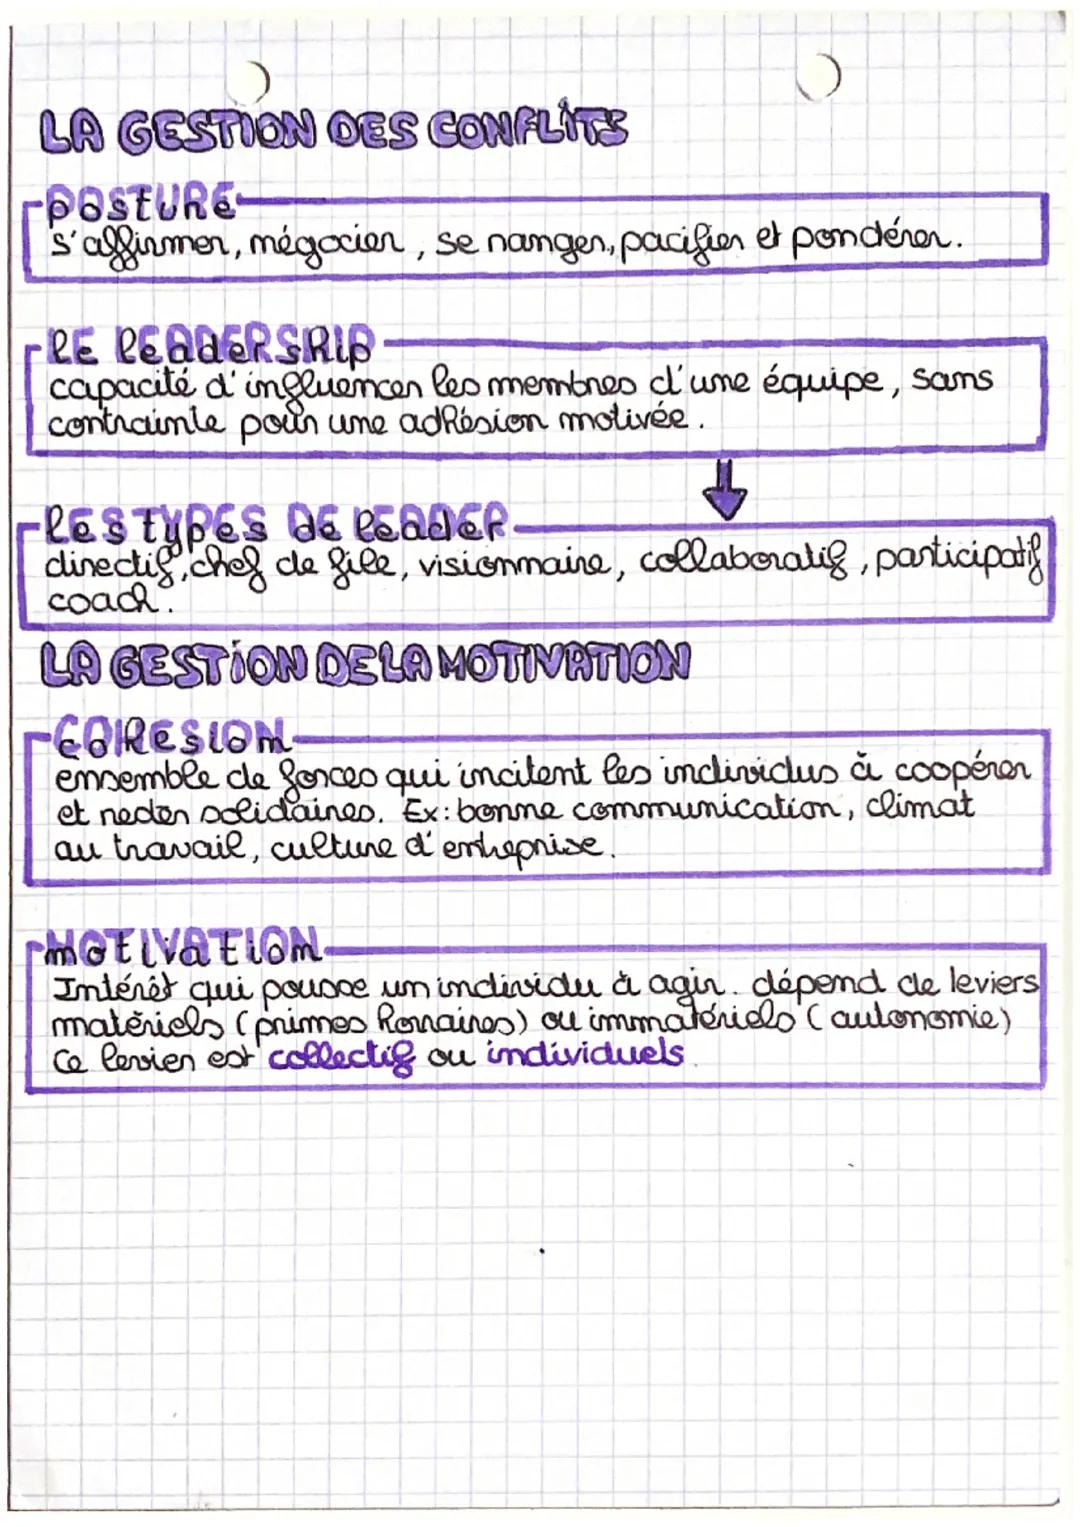 LA GESTION DES CONFLITS
POSTURE
s'affirmer, négocier, se ranger, pacifier et pondérer.
LE LEADERSHIP
capacité d'influencer les membres d'une équipe, sans
contrainte pour une adhésion motivée.
Les types de leader
directif, chef de file, visionnaire, collaboratif, participatif
coach.
LA GESTION DE LA MOTIVATION
COHESION
ensemble de forces qui incitent les individus à coopérer
et rester solidaires. Ex: bonne communication, climat
au travail, culture d'entreprise.
MOTIVATION
Intérêt qui pousse un individu à agir. dépend de leviers
matériels (primes horaires) ou immatériels (autonomie)
Ce levier est collectif ou individuels